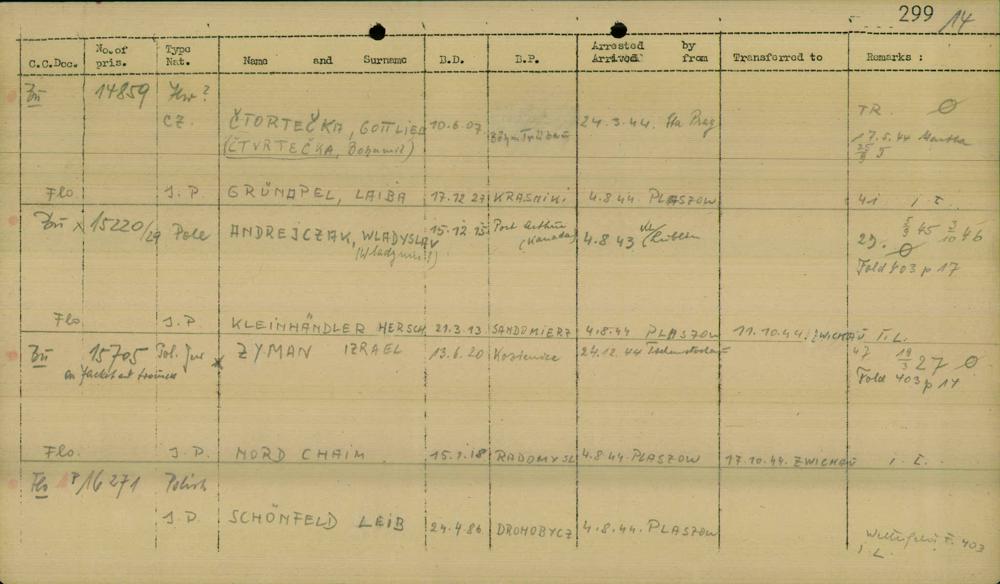 299 14
C.C.Doc. No. of pris. Type Nat. Name and Surname B.D. B.P. Arrested by Arrived from Transferred to Remarks :
Bu 14859 TR. Ø
CZ. ČTORTEČKA, GOTTLIEB 10.6.07 24.3.44. Sta Prag
(ČTVRTEČKA, Bohumil) 17.5.44
Flo. J.P GRÜNAPEL, LAIBA 17.12 27 KRASNIKI 4.8.44 PLASZOW 41 I.L.
Bu x 15220/29 Pole ANDREJCZAK, WLADYSLAV 15.12 25 Port Arthur (Kanada) 4.8 43 Lublin 29. Ø
Fold 403 p 17
Flo. J.P. KLEINHÄNDLER HERSCH 21.3.13 SANDOMIERZ 4.8.44 PLASZOW 11.10.44. ZWICKAU I.L.
Bu 15705 Pol. Jue x ZYMAN IZRAEL 13.6.20 Kozienice 24.12.44 Tschenstochau 47 19/3 27 Ø
on Jacket and trousers Fold 403 p 17
Flo. J.P. NORD CHAIM 15.1.18 RADOMYSL 4.8.44. PLASZOW 17.10.44. ZWICKAU I.L.
Flo 16271 Polish
J.P. SCHÖNFELD LEIB 24.4.86 DROHOBYCZ 4.8.44. PLASZOW
F. 403
I.L.